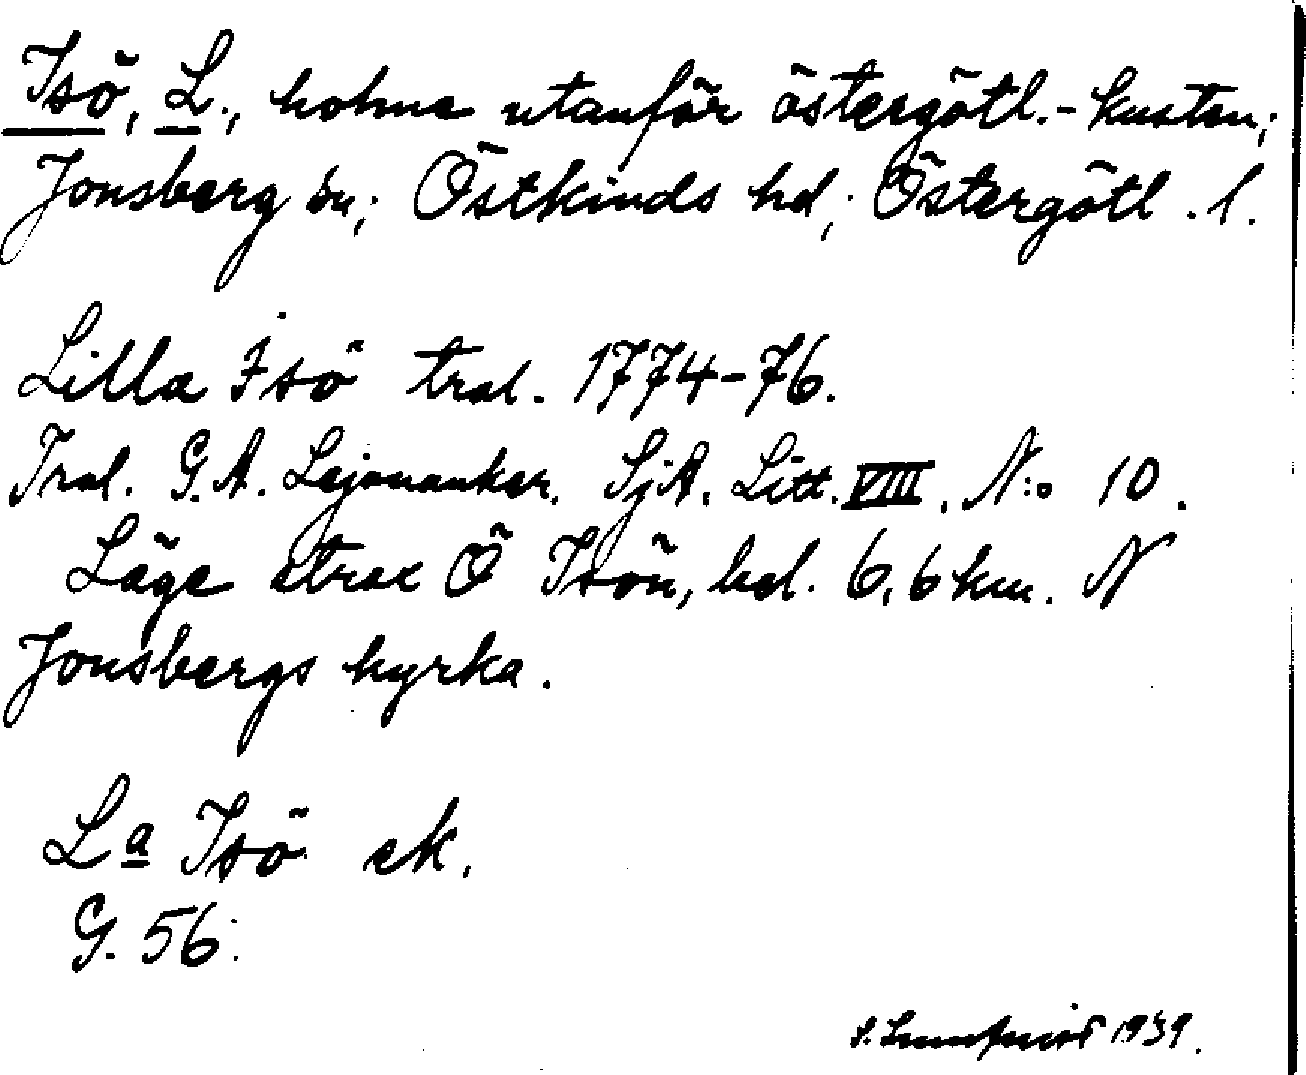 Isö, L., holme utanför östergötl.-kusten;
Jonsberg sn; Östkinds hd; Östergötl. l.
Lilla Isö tral. 1774-76.
Tral. G.A. Lejonanker. SjA. Litt. VIII. N:o 10.
Läge strax Ö Isön, bel. 6,6 km. N
Jonsbergs kyrka.
La Isö ek.
G. 56.
S. Lundquist 1939.